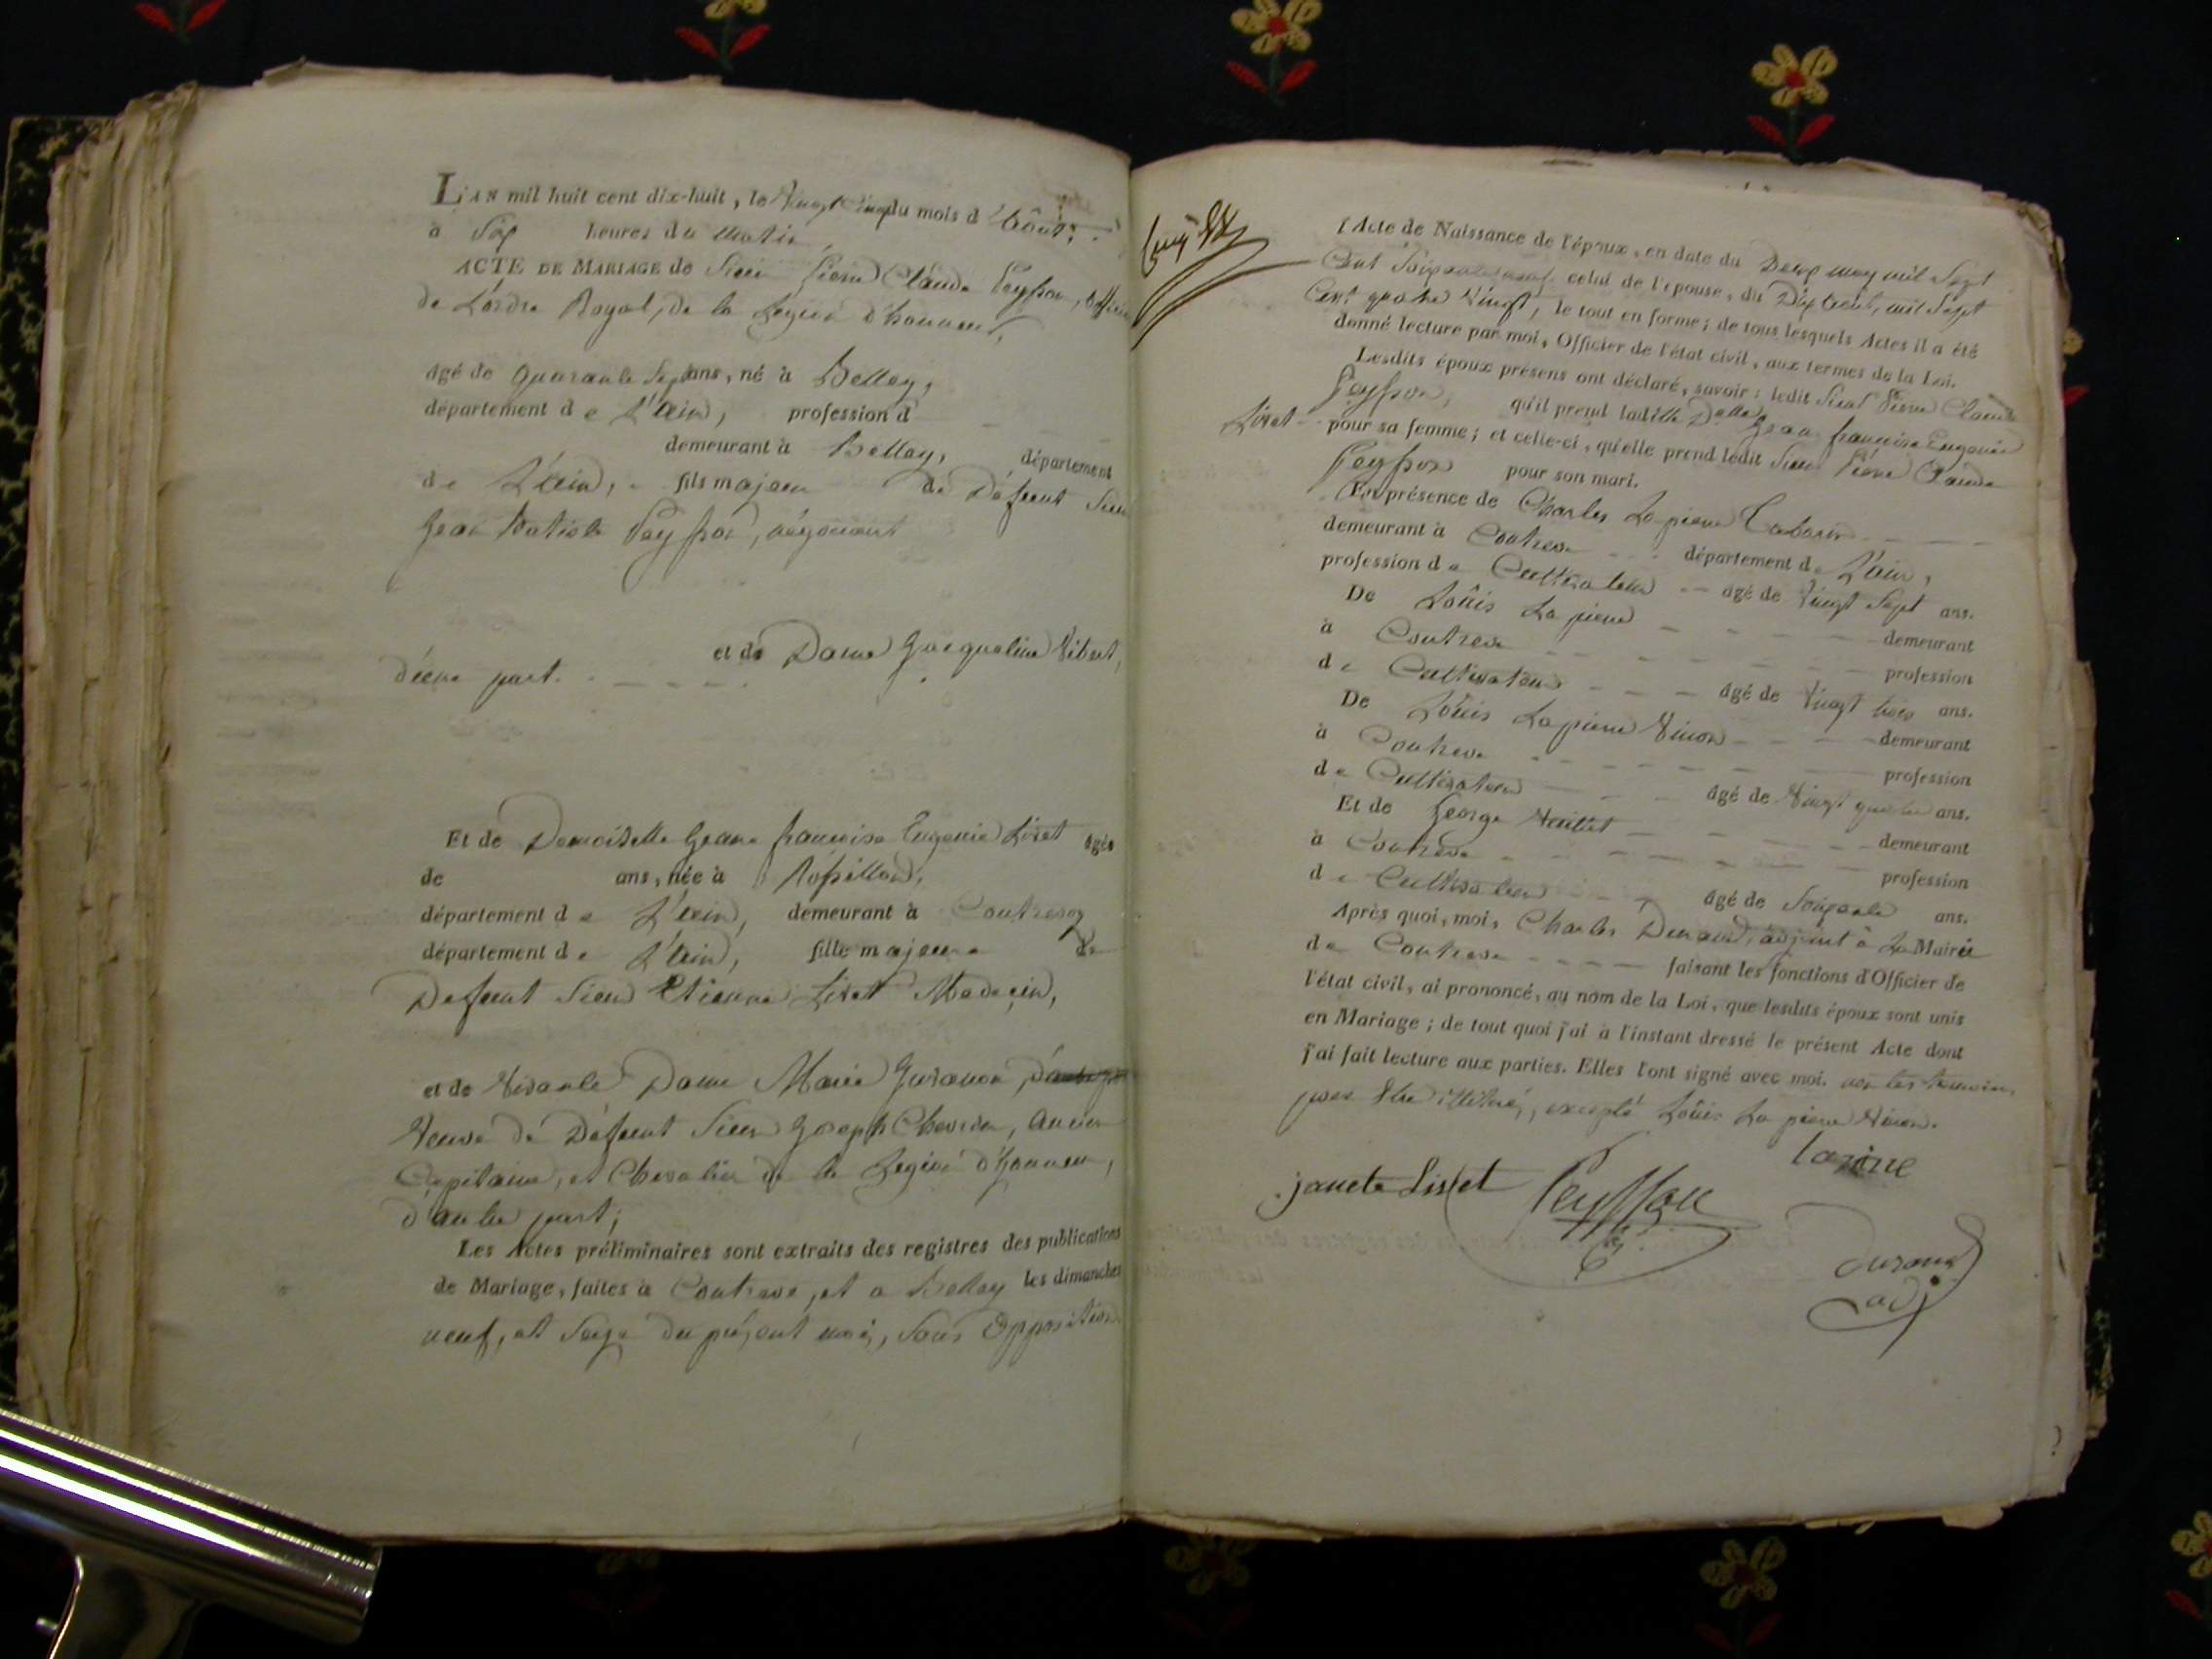 L'AN mil huit cent dix-huit, le vingt cinq du mois d'Août,
à Six heures du matin
ACTE DE MARIAGE de Sieur Pierre Claude Peysson, officier
de L'ordre Royal, de la Legion d'honneur,
âgé de quarante Sept ans, né à Belley,
département de L'ain, profession d
demeurant à Belley, département
de L'ain, fils majeur de Défunt Sieur
Jean Batiste Peysson, négociant
et de Dame Jacqueline Vibert,
d'une part.
Et de Demoiselle Jeane françoise Eugenie Livet âgée
de ans, née à Rossillon,
département de L'ain, demeurant à Contrevoz
département de L'ain, fille majeure de
Defunt Sieur Etienne Livet Medecin,
et de vivante Dame Marie
Veuve de Défunt Sieur Joseph Chevrier, ancien
Capitaine, et Chevalier de la Legion d'honneur,
d'autre part;
Les Actes préliminaires sont extraits des registres des publications
de Mariage, faites à Contreve, et a Belley les dimanches
neuf, et Seize du présent mois, Sans Opposition.
l'Acte de Naissance de l'époux, en date du Deux may mil Sept
Cent Soixante celui de l'épouse, du Dix Août, mil Sept
Cent quatre Vingt, le tout en forme; de tous lesquels Actes il a été
donné lecture par moi, Officier de l'état civil, aux termes de la Loi.
Lesdits époux présens ont déclaré, savoir: ledit Sieur Pierre Claude
Peysson, qu'il prend ladite Delle Jeane françoise Eugenie
Livet pour sa femme; et celle-ci, qu'elle prend ledit Sieur Pierre Claude
Peysson pour son mari.
En présence de Charles Lapierre
demeurant à Contreve département de L'ain,
profession de Cultivateur âgé de Vingt Sept ans.
De Loüis Lapierre demeurant
à Contreve profession
de Cultivateur âgé de Vingt trois ans.
De Loüis Lapierre Vinon demeurant
à Contreve profession
de Cultivateur âgé de Vingt quatre ans.
Et de George demeurant
à Contreve profession
de Cultivateur âgé de Soixante ans.
Après quoi, moi, Charles Durand, adjoint à La Mairie
de Contreve faisant les fonctions d'Officier de
l'état civil, ai prononcé, au nom de la Loi, que lesdits époux sont unis
en Mariage; de tout quoi j'ai à l'instant dressé le présent Acte dont
j'ai fait lecture aux parties. Elles l'ont signé avec moi. non les temoins,
pour être illitérés, excepté Loüis La pierre Vinon.
janete Liset Peysson
Durand
adj